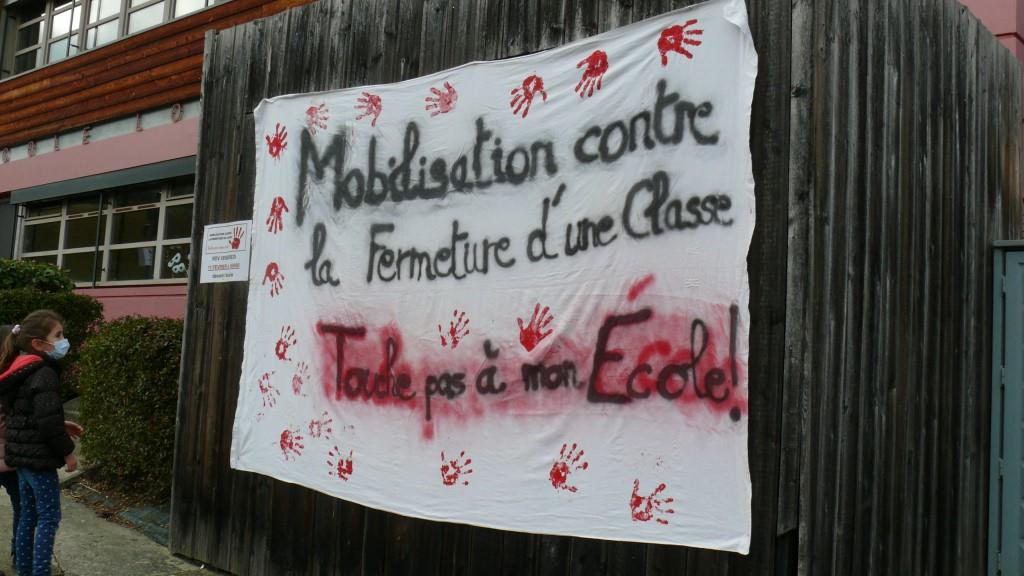 Mobilisation contre
la Fermeture d'une Classe
Touche pas à mon École!